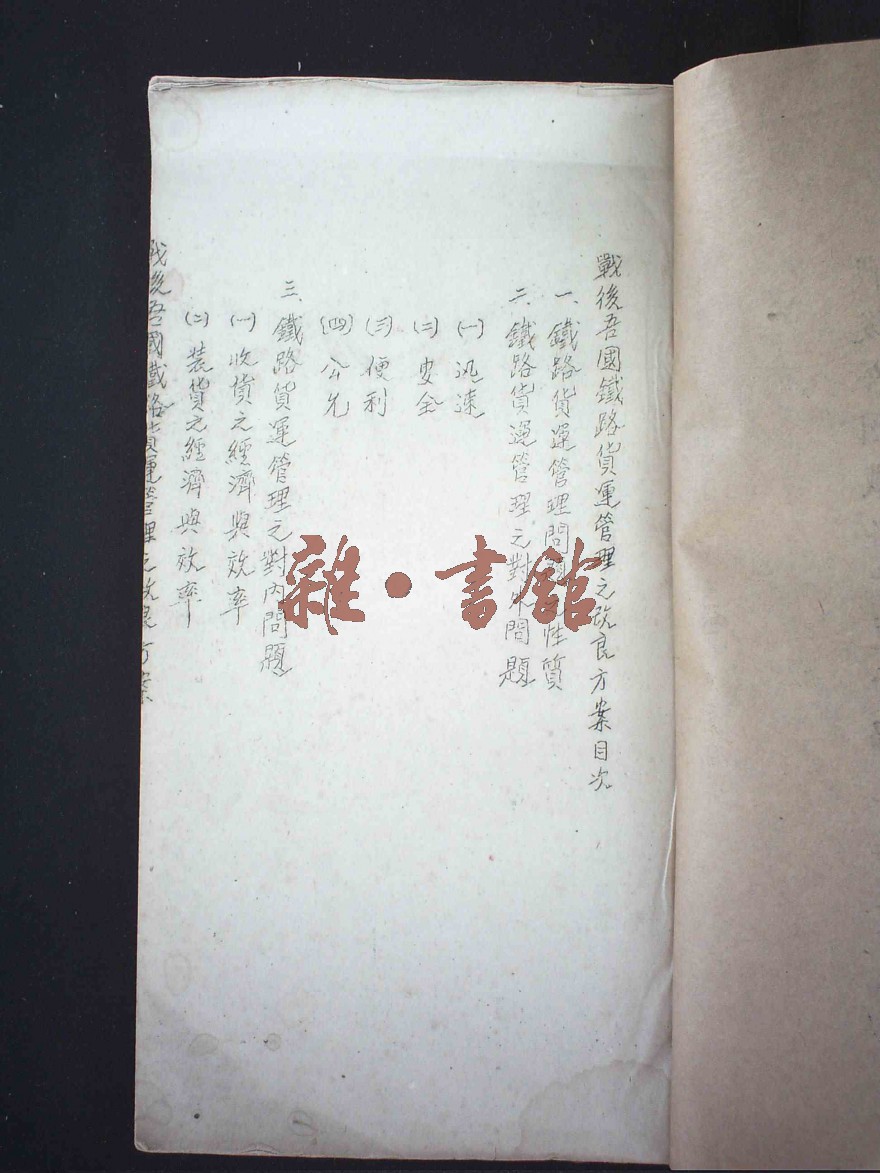 戰後吾國鐵路貨運管理之改良方案目次
一、鐵路貨運管理問題之性質
二、鐵路貨運管理之對外問題
(一)迅速
(二)安全
(三)便利
(四)公允
三、鐵路貨運管理之對內問題
(一)收貨之經濟與效率
(二)裝貨之經濟與效率
戰後吾國鐵路貨運管理之改良方案
雜·書館